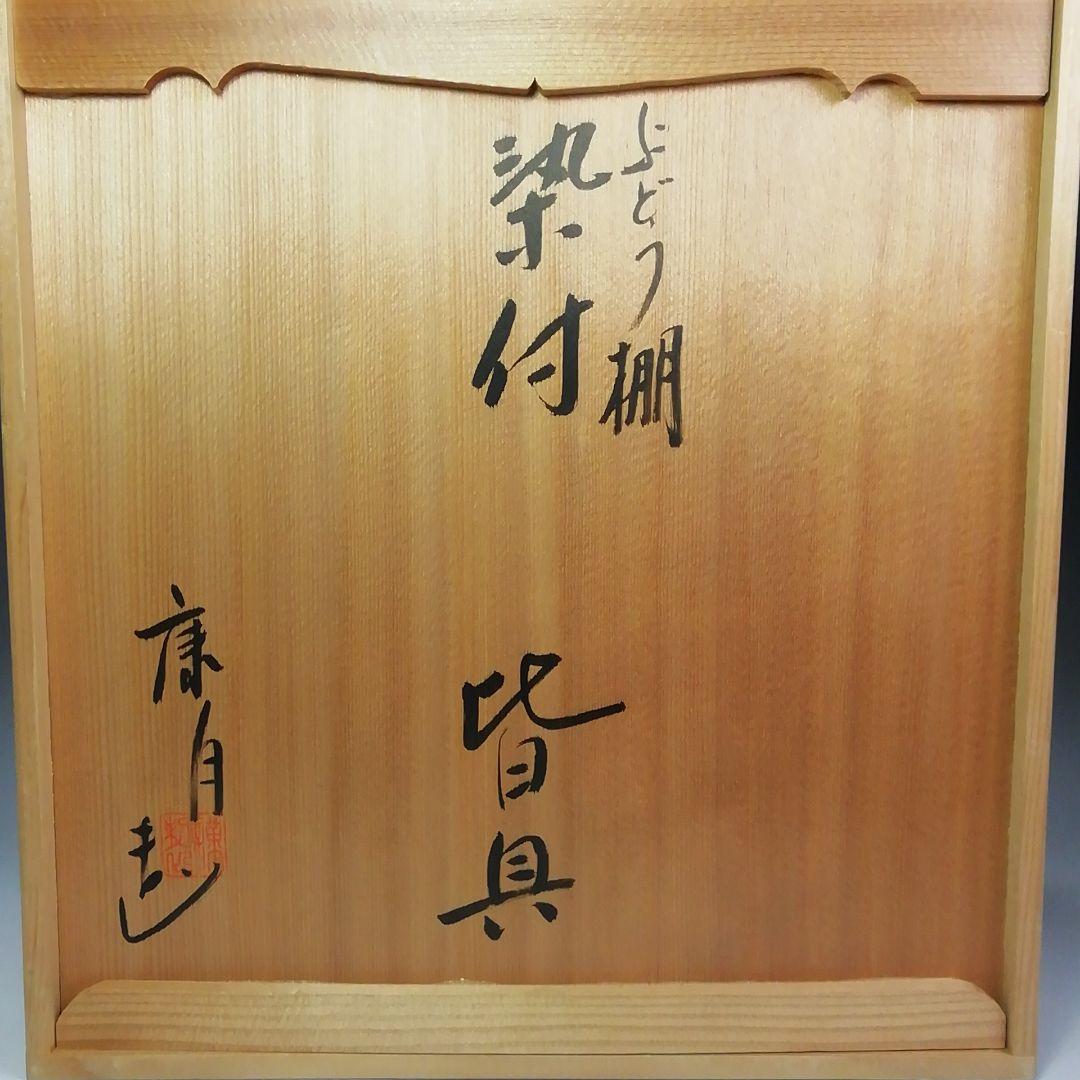 ぶどう棚
染付 皆具
康月造